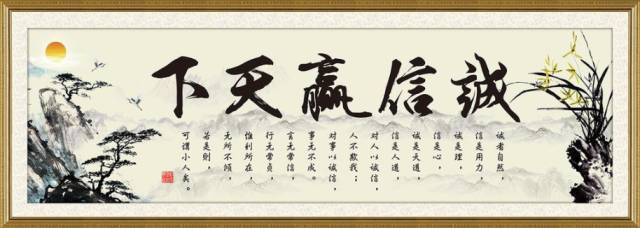 誠信赢天下
诚者自然，
信是用力，
诚是理，
信是心，
诚是天道，
信是人道，
对人以诚信，
人不欺我；
对事以诚信，
事无不成。
言无常信，
行无常贞，
惟利所在，
无所不倾，
若是则，
可谓小人矣。